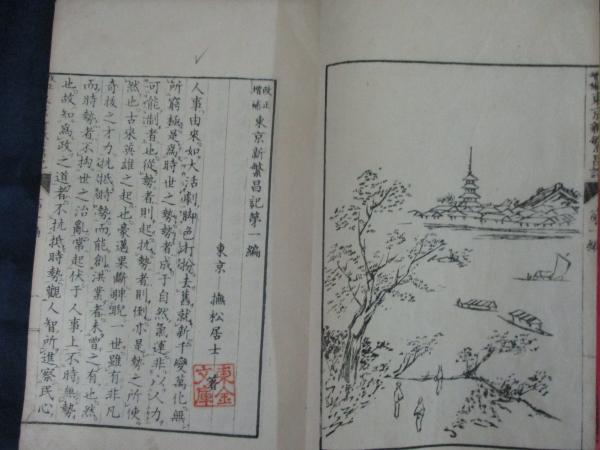 改正増補 東京新繁昌記第一編
東京 撫松居士 著
人事由來如大活劇脚色打扮去舊就新千變萬化無
所窮極是爲時世之勢勢者成于自然氣運非以人力
可能制者也從勢者則起抗勢者則倒亦是勢之所使
然也古來英雄之起也豪邁果斷睥睨一世雖有非凡
奇拔之才力抗抵時勢而能創洪業者未曾之有也然
而時勢者不拘世之治亂常起伏于人事上不時無勢
也故知爲政之道者不抗抵時勢觀人智所進察民心
東金文庫
增補東京新繁昌記